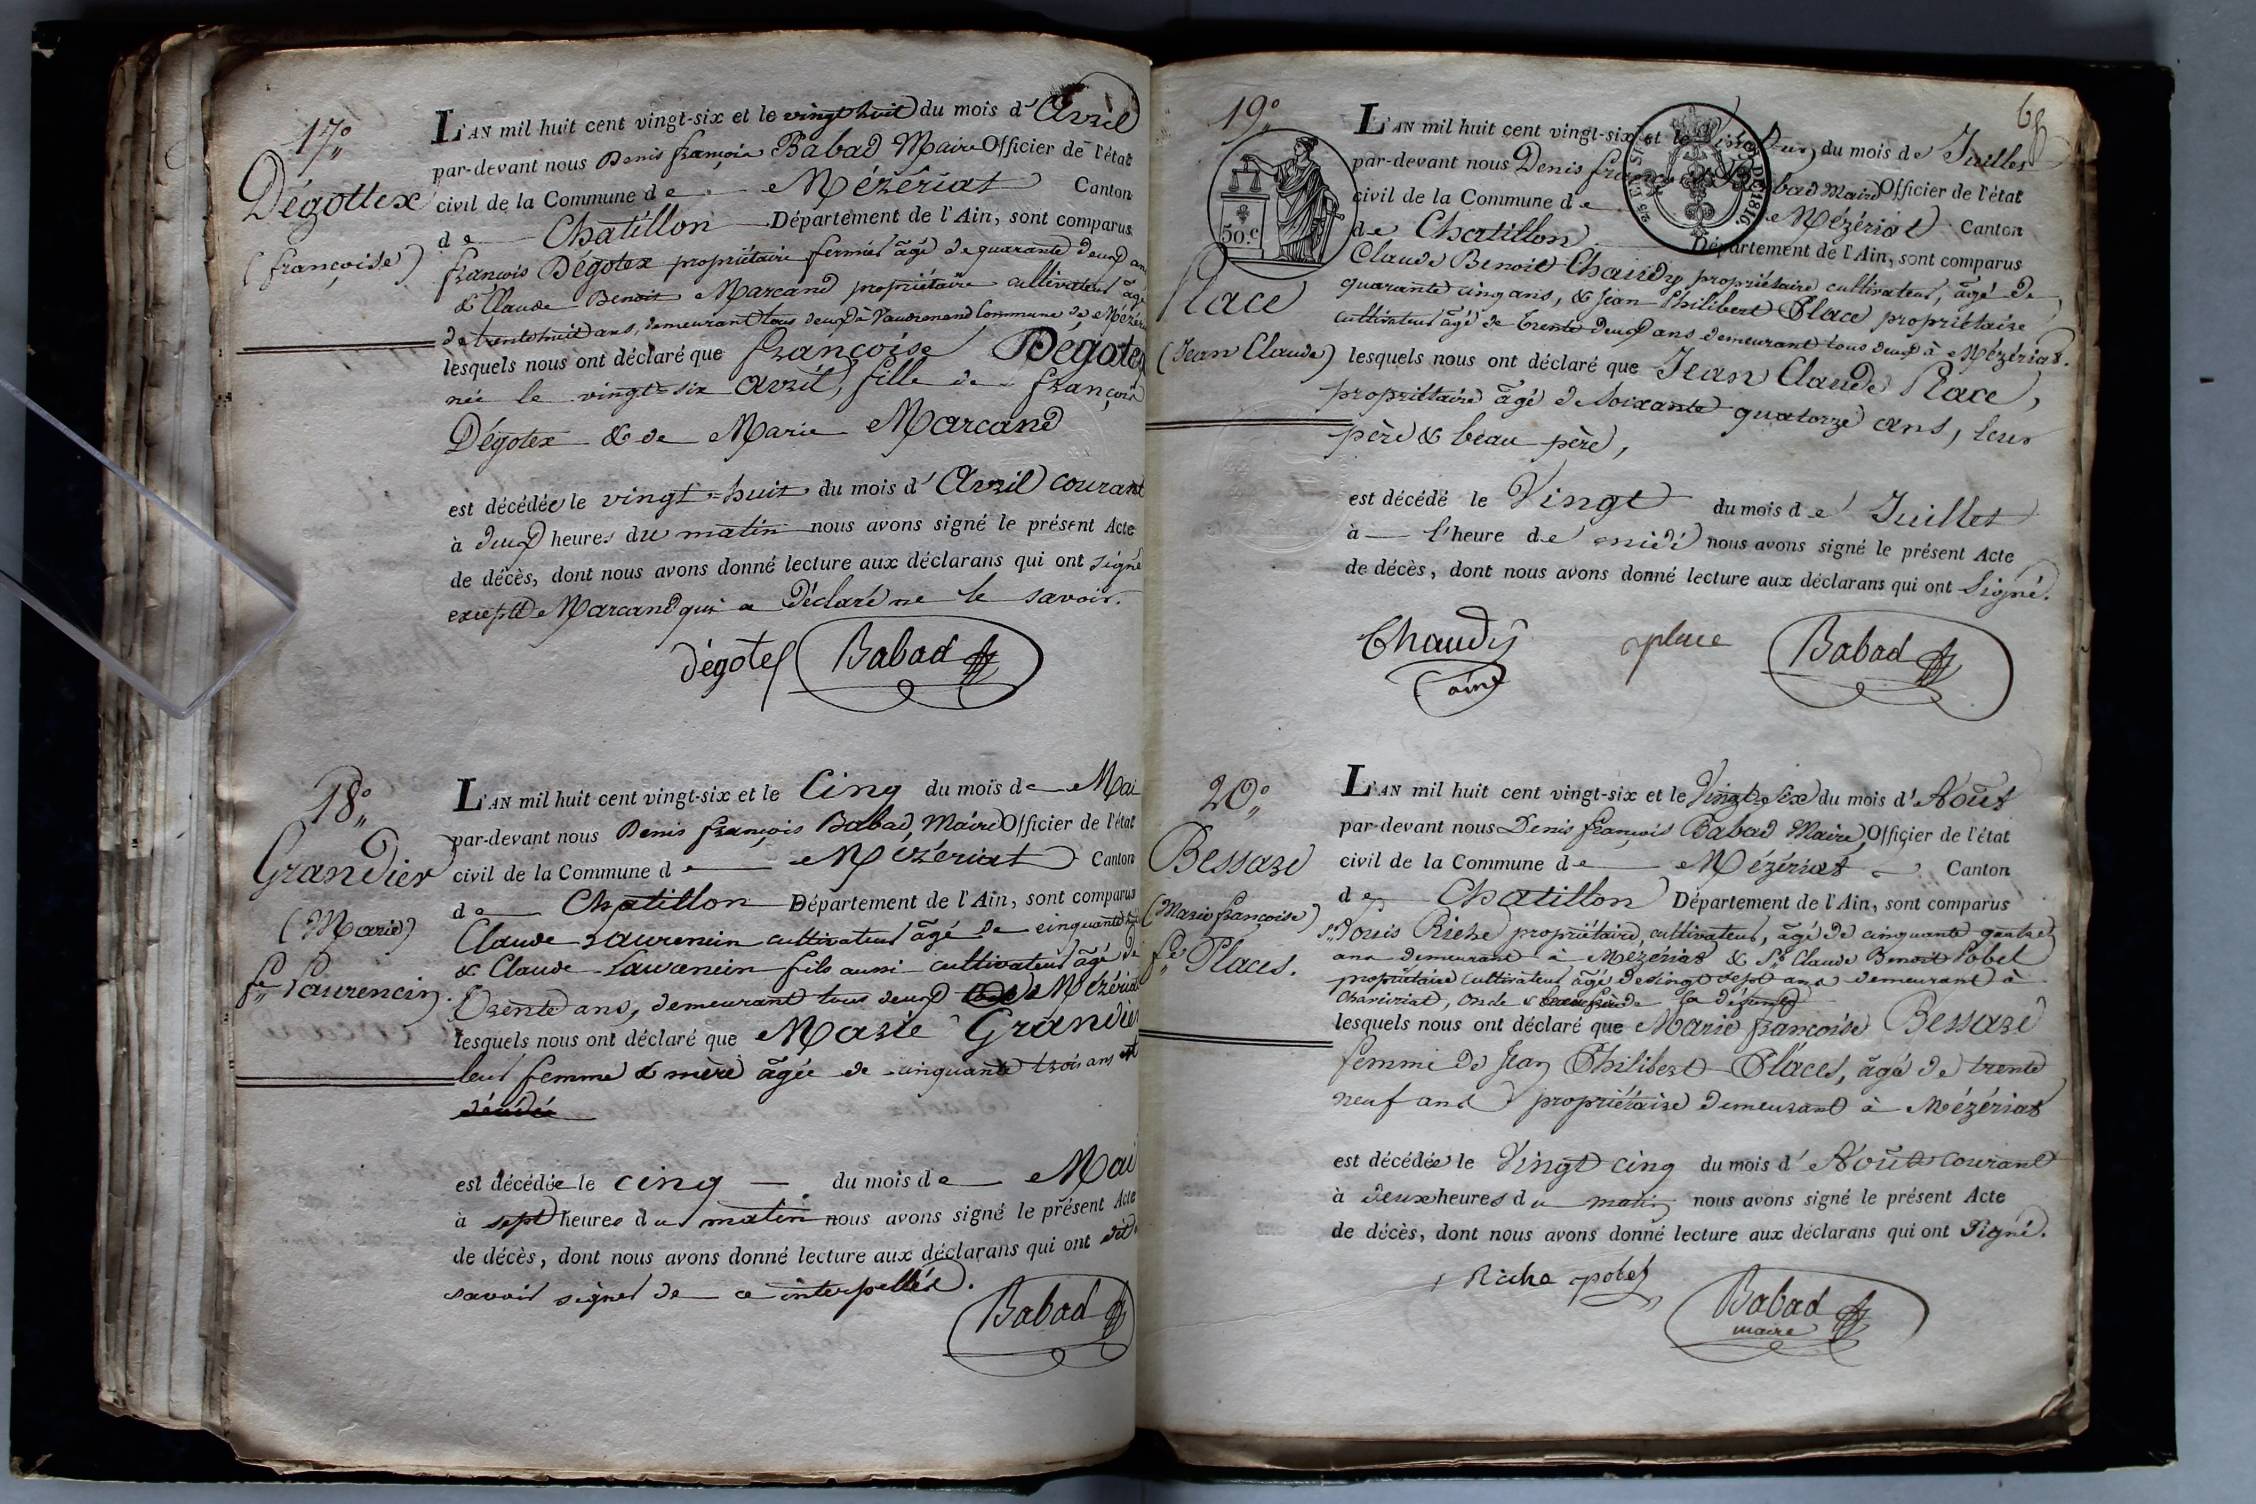 17°
Dégottex
(françoise)
L'AN mil huit cent vingt-six et le vingt huit du mois d'Avril
par-devant nous Denis françois Babad Maire Officier de l'état
civil de la Commune de Mézériat Canton
de Chatillon Département de l'Ain, sont comparus
françois Dégotex propriétaire fermier âgé de quarante deux ans
& Claude Benoit Marcand propriétaire cultivateur âgé
de trente huit ans, demeurant tous deux à Vaudrenand Commune de Mézériat
lesquels nous ont déclaré que françoise Dégotex
née le vingt-six avril, fille de françois
Dégotex & de Marie Marcand
est décédée le vingt-huit du mois d'Avril courant
à deux heures du matin nous avons signé le présent Acte
de décès, dont nous avons donné lecture aux déclarans qui ont signé
excepté Marcand qui a déclaré ne le savoir.
dégotex Babad
18°
Grandier
(Marie)
fe Laurencin.
L'AN mil huit cent vingt-six et le Cinq du mois de Mai
par-devant nous Denis françois Babad, Maire Officier de l'état
civil de la Commune de Mézériat Canton
de Chatillon Département de l'Ain, sont comparus
Claude Laurencin cultivateur âgé de cinquante
& Claude Laurencin fils aussi cultivateur âgé de
trente ans, demeurant tous deux Mézériat
lesquels nous ont déclaré que Marie Grandier
leur femme & mère âgée de cinquante trois ans est
décédée
est décédée le cinq du mois de Mai
à sept heures du matin nous avons signé le présent Acte
de décès, dont nous avons donné lecture aux déclarans qui ont dit
savoir signer de ce interpellés.
Babad
19°
68
Place
(Jean Claude)
50.c
DE 1816.
L'AN mil huit cent vingt-six et le vingt Deux du mois de Juillet
par-devant nous Denis françois Babad Maire Officier de l'état
civil de la Commune de Mézériat Canton
de Chatillon Département de l'Ain, sont comparus
Claude Benoit Chaudy propriétaire cultivateur, âgé de
quarante cinq ans, & Jean Philibert Place propriétaire
cultivateur âgé de trente deux ans demeurant tous deux à Mézériat.
lesquels nous ont déclaré que Jean Claude Place,
propriétaire âgé de soixante quatorze ans, leur
père & beau père,
est décédé le Vingt du mois de Juillet
à l'heure de midi nous avons signé le présent Acte
de décès, dont nous avons donné lecture aux déclarans qui ont Signé.
Chaudy place Babad
ainé
20°
Bessard
(Marie françoise)
fe Places.
L'AN mil huit cent vingt-six et le Vingt-six du mois d'Août
par-devant nous Denis françois Babad Maire, Officier de l'état
civil de la Commune de Mézériat Canton
de Chatillon Département de l'Ain, sont comparus
Sr Louis Riche propriétaire, cultivateur, âgé de cinquante quatre
ans demeurant à Mézériat & Sr Claude Benoit Pobel
propriétaire cultivateur âgé de vingt sept ans demeurant à
Chaveiriat, oncle & beau frère de la défunte
lesquels nous ont déclaré que Marie françoise Bessard
femme de Jean Philibert Places, âgé de trente
neuf ans propriétaire demeurant à Mézériat
est décédée le Vingt cinq du mois d'Août courant
à deux heures du matin nous avons signé le présent Acte
de décès, dont nous avons donné lecture aux déclarans qui ont Signé.
Riche pobel Babad
maire